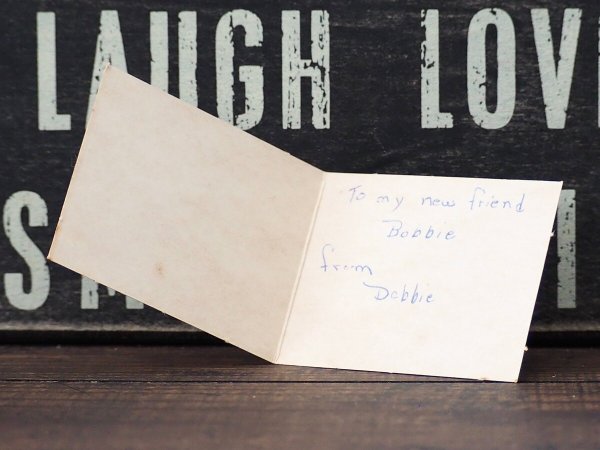 LAUGH LOV
S
To my new friend
Bobbie
from
Debbie